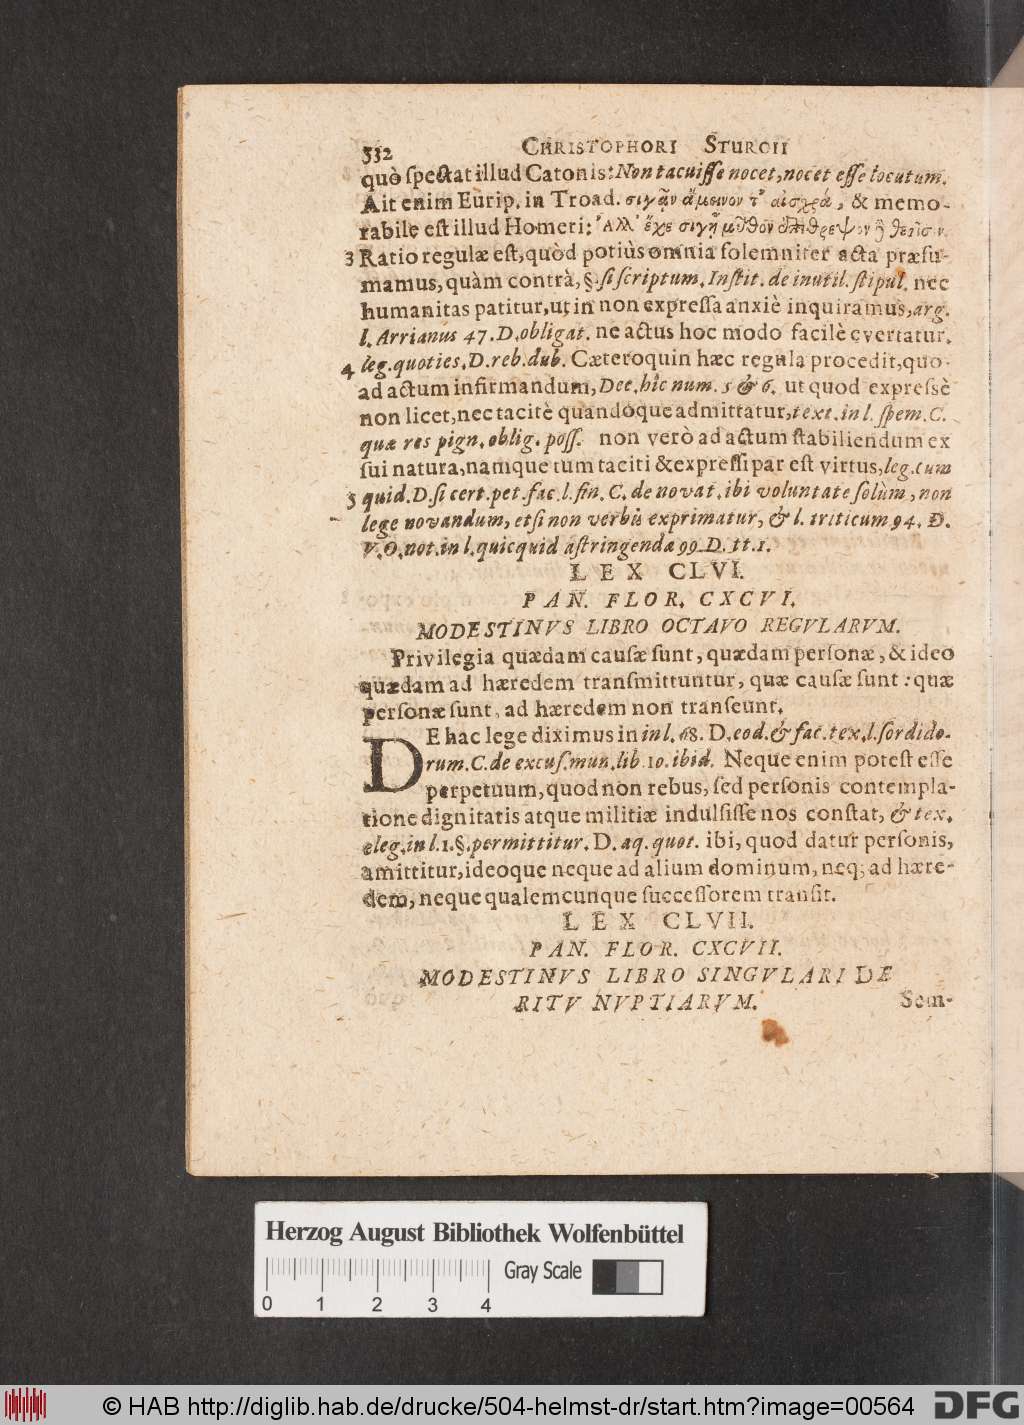 532 CHRISTOPHORI STURCII
quò ſpectat illud Catonis: Non tacuiſſe nocet, nocet eſſe locutum.
Ait enim Eurip. in Troad. σιγᾷν ἄμεινον τ' αἰσχρά, & memo-
rabile eſt illud Homeri: Ἀλλ' ἔχε σιγῇ μῦθον
3 Ratio regulæ eſt, quòd potiùs omnia ſolemniter acta præſu-
mamus, quàm contrà, §. ſi ſcriptum. Inſtit. de inutil. ſtipul. nec
humanitas patitur, ut in non expreſſa anxiè inquiramus, arg.
l. Arrianus 47. D. obligat. ne actus hoc modo facilè evertatur.
4 leg. quoties. D. reb. dub. Cæteroquin hæc regula procedit, quo-
ad actum infirmandum, Dec. hîc num. 5 & 6. ut quod expreſsè
non licet, nec tacitè quandoque admittatur, text. in l. ſpem. C.
quæ res pign. oblig. poſſ. non verò ad actum ſtabiliendum ex
ſui natura, namque tum taciti & expreſſi par eſt virtus, leg. cum
5 quid. D. ſi cert. pet. fac. l. fin. C. de novat. ibi voluntate ſolùm, non
lege novandum, etſi non verbis exprimatur, & l. triticum 94. D.
V. O. not. in l. quicquid aſtringendæ 99. D. tt. 1.
LEX CLVI.
PAN. FLOR. CXCVI.
MODESTINVS LIBRO OCTAVO REGVLARVM.
Privilegia quædam cauſæ ſunt, quædam perſonæ, & ideo
quædam ad hæredem transmittuntur, quæ cauſæ ſunt: quæ
perſonæ ſunt, ad hæredem non tranſeunt.
DE hac lege diximus in inl. 68. D. eod. & fac. tex. l. ſordido-
rum. C. de excuſ. mun. lib. 10. ibid. Neque enim poteſt eſſe
perpetuum, quod non rebus, ſed perſonis contempla-
tione dignitatis atque militiæ indulſiſſe nos conſtat, & tex.
eleg. in l. 1. §. permittitur. D. aq. quot. ibi, quod datur perſonis,
amittitur, ideoque neque ad alium dominum, neq; ad hære-
dem, neque qualemcunque ſucceſſorem tranſit.
LEX CLVII.
PAN. FLOR. CXCVII.
MODESTINVS LIBRO SINGVLARI DE
RITV NVPTIARVM.
Sem-
Herzog August Bibliothek Wolfenbüttel
0 1 2 3 4 Gray Scale
© HAB http://diglib.hab.de/drucke/504-helmst-dr/start.htm?image=00564 DFG